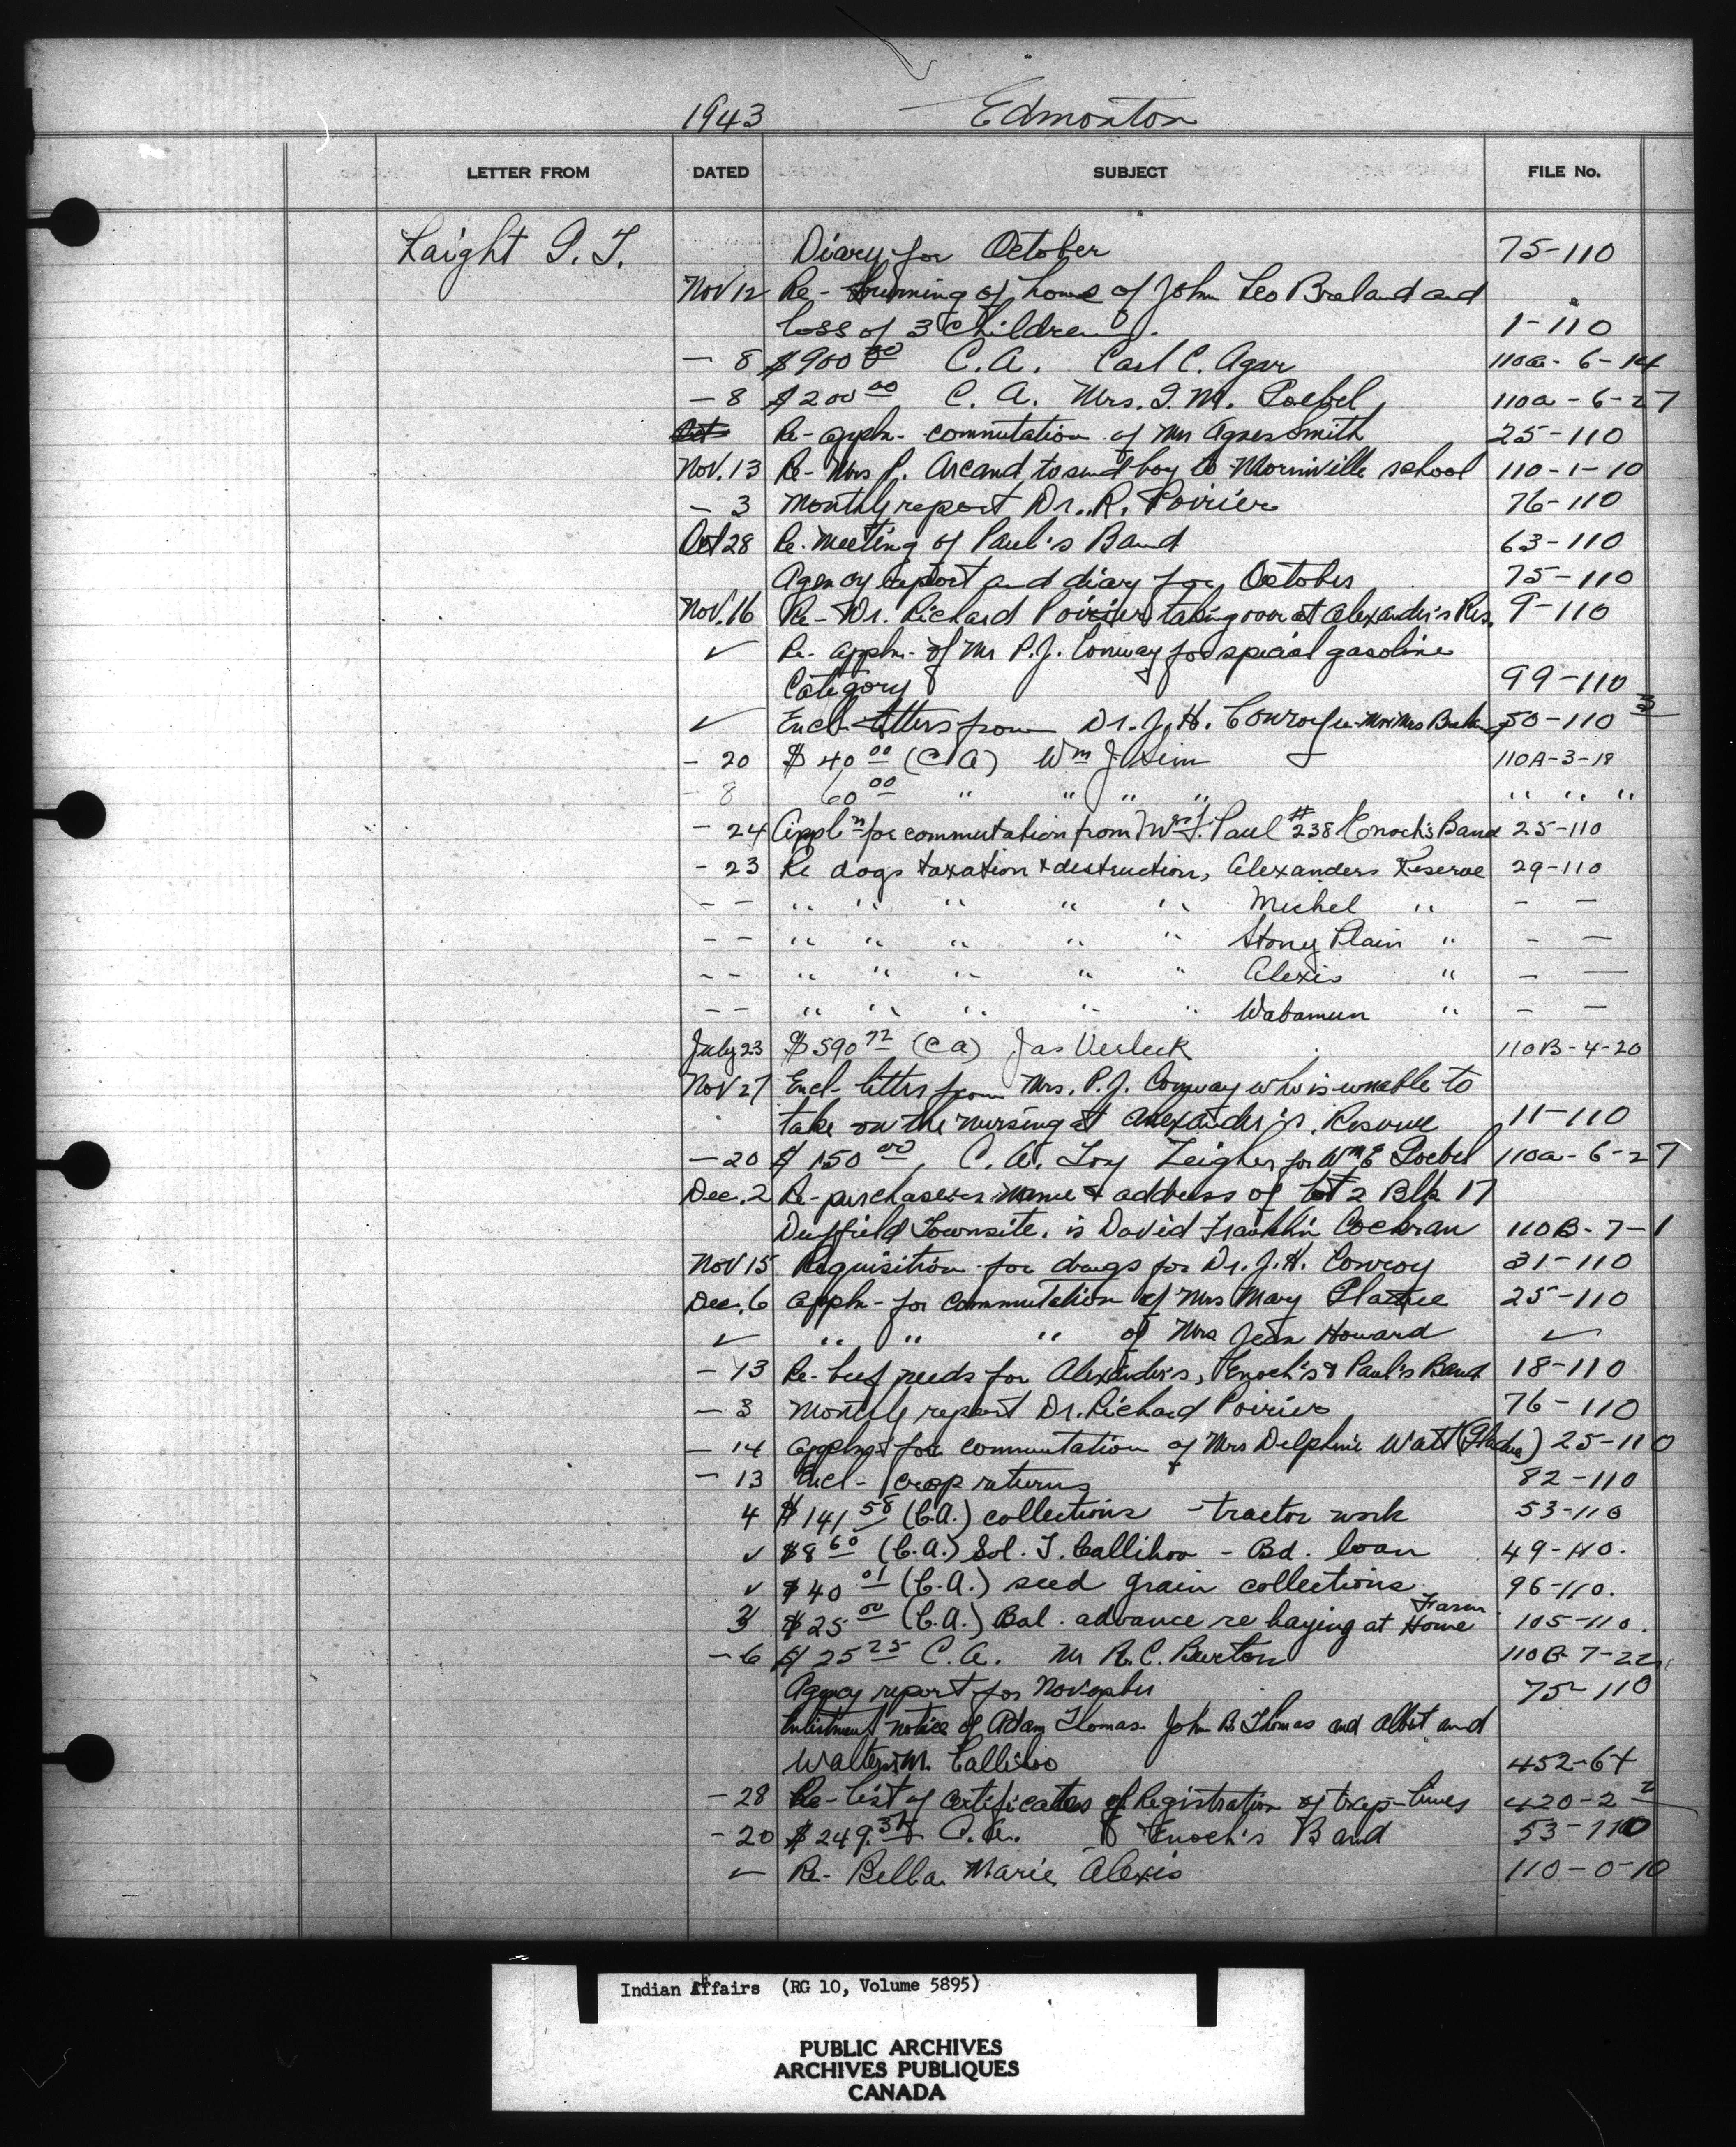 1943 Edmonton
LETTER FROM DATED SUBJECT FILE No.
Laight G. T. Diary for October 75-110
Nov 12 Re - burning of home of John Leo Breland and
loss of 3 children. 1-110
- 8 $900 00 C.A. Carl C. Agar 110a-6-14
- 8 $200 00 C.A. Mrs. I. M. Goebel 110a-6-27
Re- appln- commutation of Mrs Agnes Smith 25-110
Nov. 13 Re- Mrs P. Arcand to send boy to Morinville school 110-1-10
- 3 Monthly report Dr. R. Poirier 76-110
Oct 28 Re. Meeting of Paul's Band 63-110
Agency report and diary for October 75-110
Nov. 16 Re- Dr. Richard Poirier taking over at Alexander's Res. 9-110
✓ Re- appln- of Mr P.J. Conway for special gasoline
Category 99-110
✓ Encl- letters from Dr. J. H. Conroy re- 50-110 3
- 20 $40 00 (C A) Wm J. Sim 110A-3-18
- 8 60 00 " " " " " " "
- 24 Appl'n for commutation from Mrs. J. Paul #238 Enoch's Band 25-110
- 23 Re dogs taxation & destruction, Alexanders Reserve 29-110
- - " " " " " Michel " - -
- - " " " " " Stony Plain " - -
- - " " " " " Alexis " - -
- - " " " " " Wabamun " - -
July 23 $590 72 (C A) Jas Verleck 110B-4-20
Nov 27 Encl- letter from Mrs. P.J. Conway who is unable to
take on the nursing at Alexander's Reserve 11-110
- 20 $150 00, C.A. Loy Zeigler for Wm E Goebel 110a-6-27
Dec. 2 Re- purchasers name & address of Lot 2 Blk 17
Duffield Townsite, is David Franklin Cochran 110B-7-1
Nov 15 Requisition for drugs for Dr. J.H. Conroy 31-110
Dec. 6 Appln- for commutation of Mrs Mary 25-110
✓ " " " of Mrs Jean Howard ✓
- 13 Re- beef needs for Alexander's, Enoch's & Paul's Band 18-110
- 3 Monthly report Dr. Richard Poirier 76-110
- 14 Appln- for commutation of Mrs Delphine Watt 25-110
- 13 Encl- crop returns 82-110
4 $141 58 (C.A.) collections - tractor work 53-110
✓ $8 60 (C.A.) Sol. T. Callihoo - Bd. loan 49-110.
✓ $40 01 (C.A.) seed grain collections 96-110.
3 $25 00 (C.A.) Bal. advance re haying at Home Farm 105-110.
- 6 $25 25 C.A. Mr R.C. Burton 110B-7-22
Agency report for November 75-110
Enlistment notice of Adam Thomas. John B. Thomas and Albert and
Walter M. Callihoo 452-64
- 28 Re- list of certificates of Registration of trap-lines 420-2 2
- 20 $249. C.A. Enoch's Band 53-110
✓ Re- Bella Marie Alexis 110-0-10
Indian Affairs (RG 10, Volume 5895)
PUBLIC ARCHIVES
ARCHIVES PUBLIQUES
CANADA